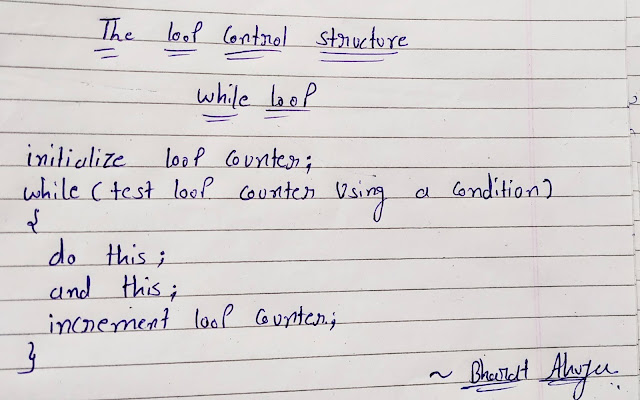 The loop Control structure
while loop
initialize loop counter;
while (test loop counter Using a condition)
{
do this;
and this;
increment loop counter;
}
~ Bharat Ahuja